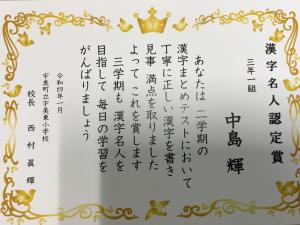 漢字名人認定賞
三年一組
中島 輝
あなたは 二学期の
漢字まとめテストにおいて
丁寧に正しい漢字を書き
見事 満点を取りました
よって これを賞します
三学期も 漢字名人を
目指して 毎日の学習を
がんばりましょう
令和四年一月
宇美町立宇美東小学校
校長 西村 眞 輝